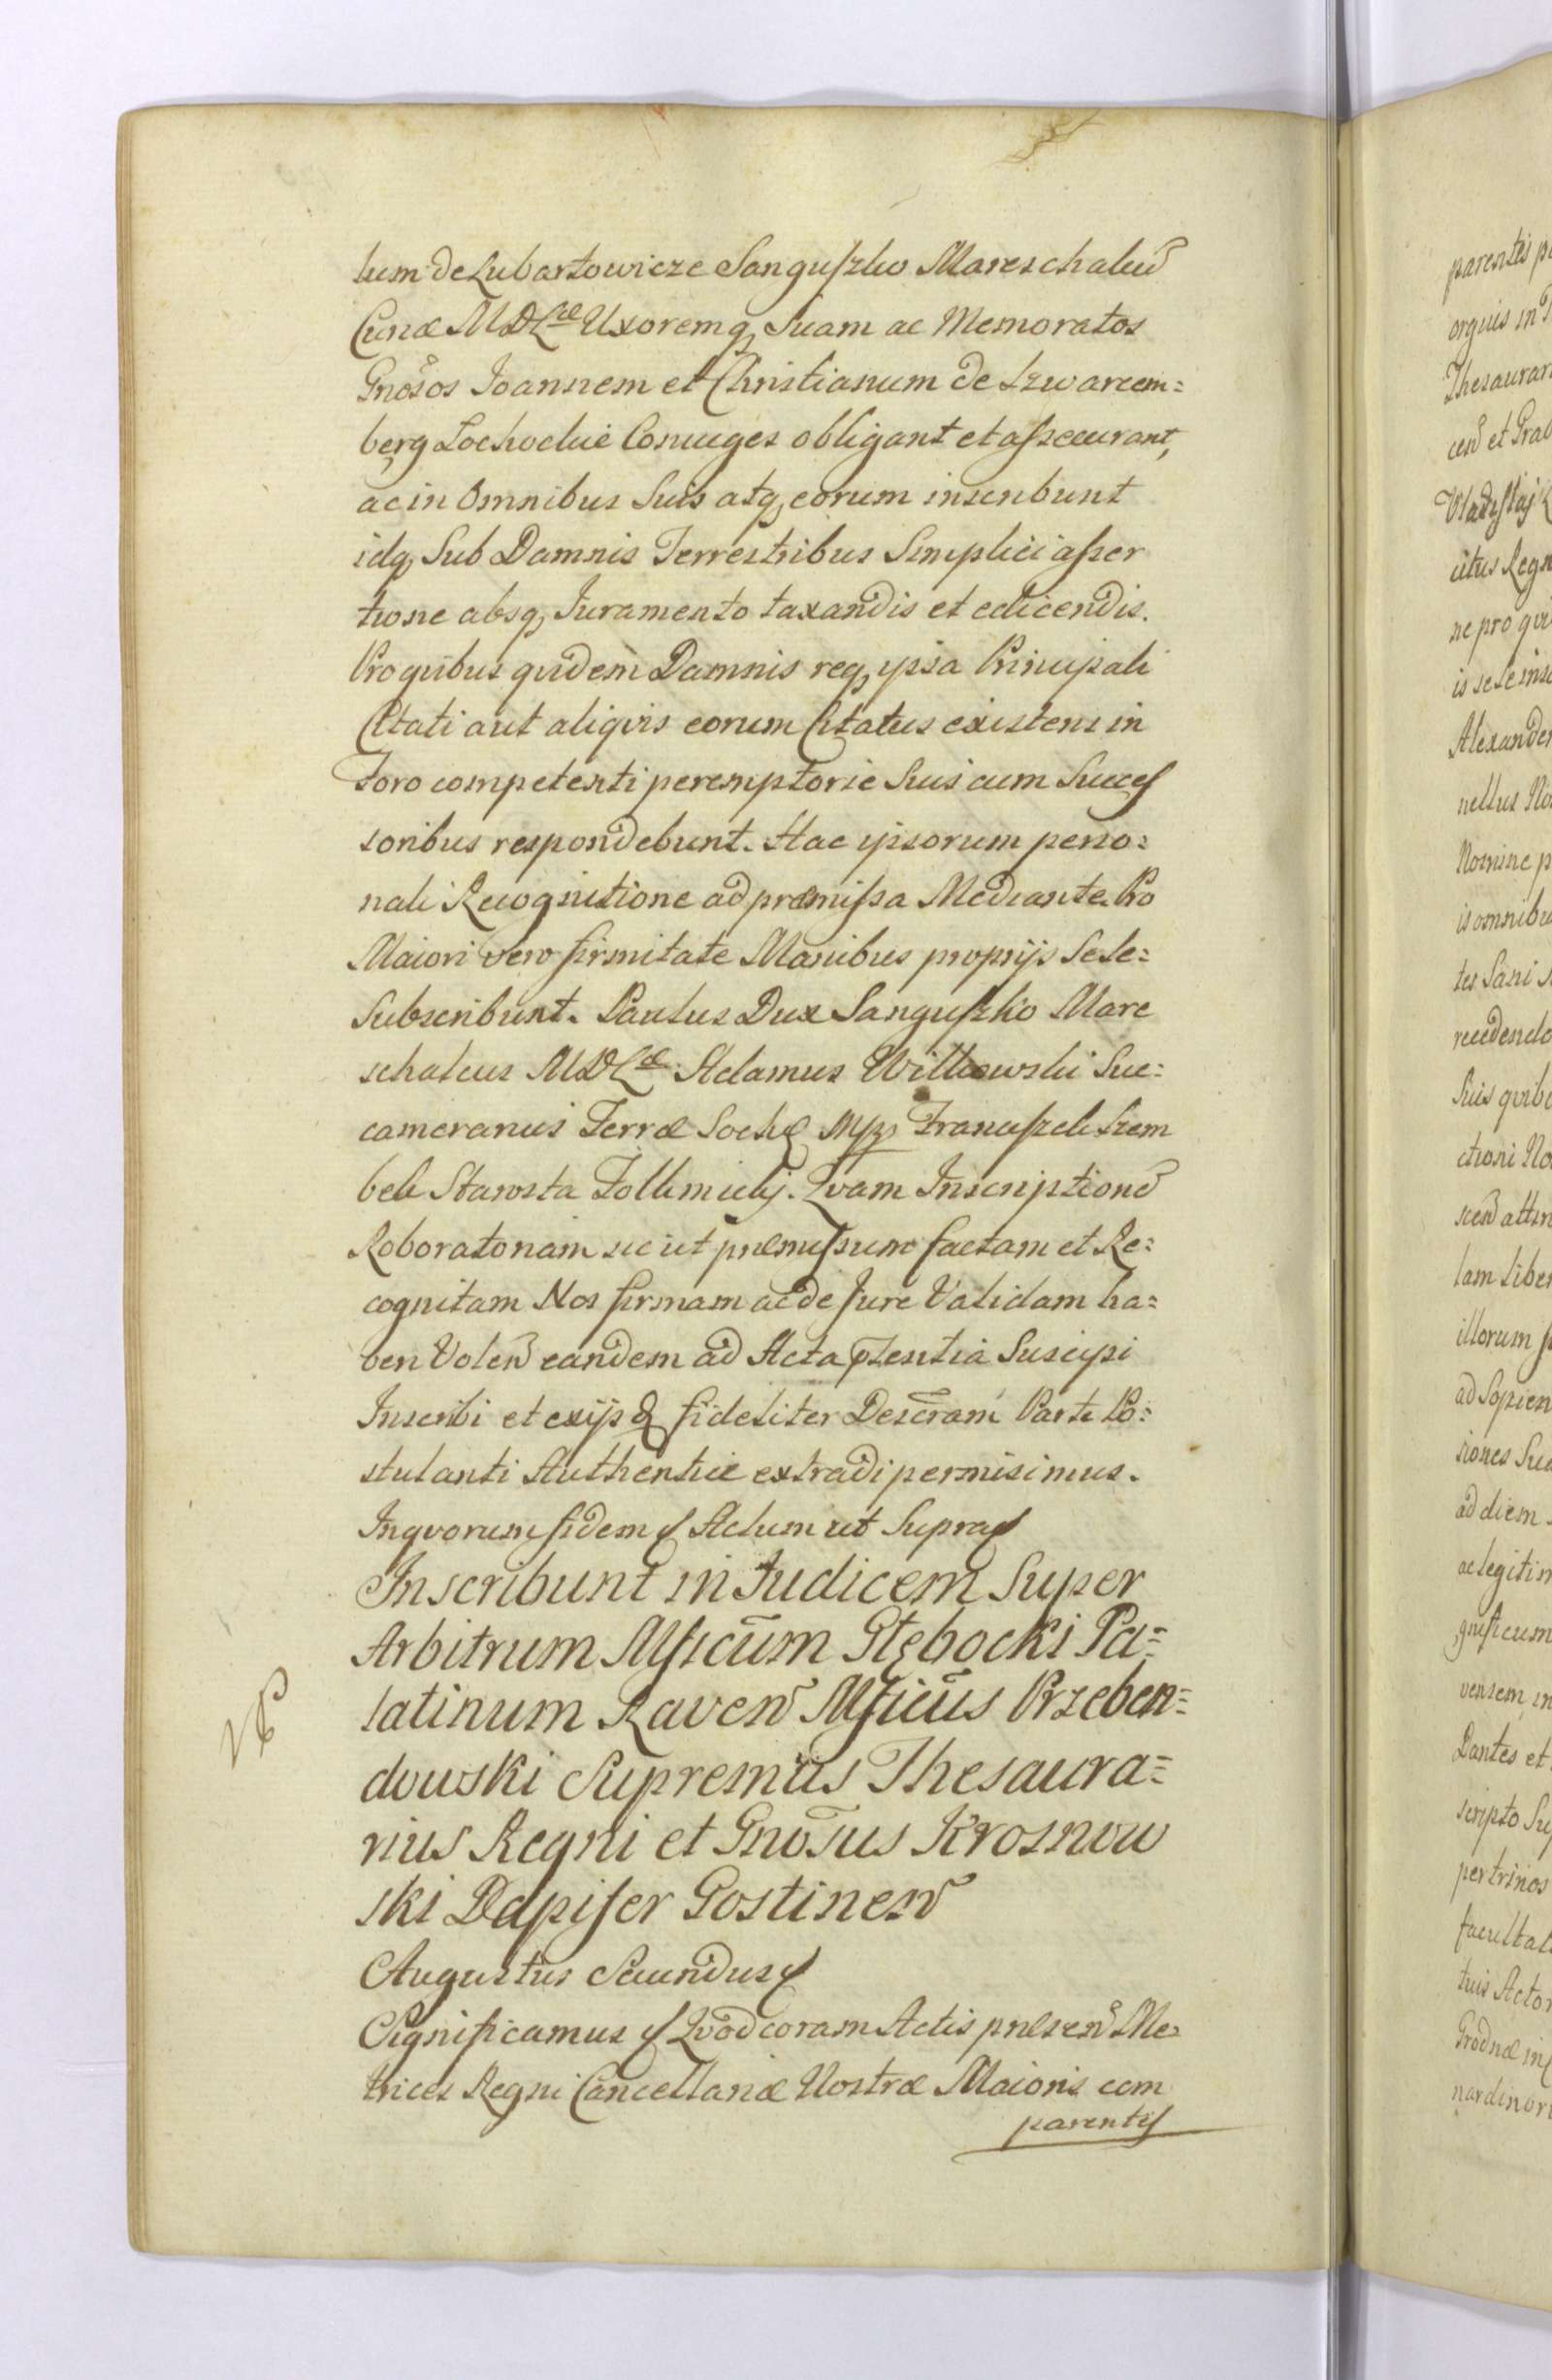 lum de Lubartowicze Sanguszko Mareschalcũ
Curiæ MDLitæ Uxoremq, Suam ac Memoratos
Gnõsos Joannem et Christianum de Szwarcem=
berg Lochockie Coniuges obligant et assecurant,
ac in Omnibus Suis atq, eorum inscribunt
idq, Sub Damnis Terrestribus Simplici asser
tione absq, Juramento taxandis et edicendis.
Pro quibus quidem Damnis req, ypsa Principali
Citati aut aliqvis eorum Citatus existens in
Foro competenti peremptorie Suis cum Succes
soribus respondebunt. Hac ypsorum perso=
nali Recognitione ad præmissa Mediante. Pro
Maiori vero firmitate Manibus proprijs Sese=
Subscribunt. Paulus Dux Sanguszko Mare
schalcus MDL Adamus Witkowski Suc=
camerarius Terræ Soch mp Franciszek Szem
bek Starosta Tolkmicky. Qvam Inscriptionẽ
Roboratoriam sic ut præmissum factam et Re=
cognitam Nos firmam ac de Jure Validam ha=
beri Volen eandem ad Acta pñtentia Suscipi
Inscribi et exijs & fideliter Descram Parti Po=
stulanti Authentice extradi permisimus.
In qvorum fidem Actum ut Supra
Inscribunt in Judicem Super
Arbitrum Mficum Głębocki Pa=
latinum Raven Mficus Przeben=
dowski Supremus Thesaura=
rius Regni et Gnosus Krosnow
ski Dapifer Gostinen
NB
Augustus Secundus
Significamus Qvod coram Actis præsen Me=
trices Regni Cancellariæ Nostræ Maioris com
parentes
parentes
orquis in
Thesaurar
cen et Grab
Vladislaj
citus Regn
ne pro qvi
is sese insc
Alexander
nellus No
Nomine p
is omnibus
tes Sani
recedendo
Suis qvibu
ctioni No
scen attin
lam liber
illorum
ad Sopien
siones Sua
ad diem
ac legitim
gnificum
vensem in
Dantes et
scripto Su
per trinos
facultat
tuis Actor
Grodnæ in
nardinor